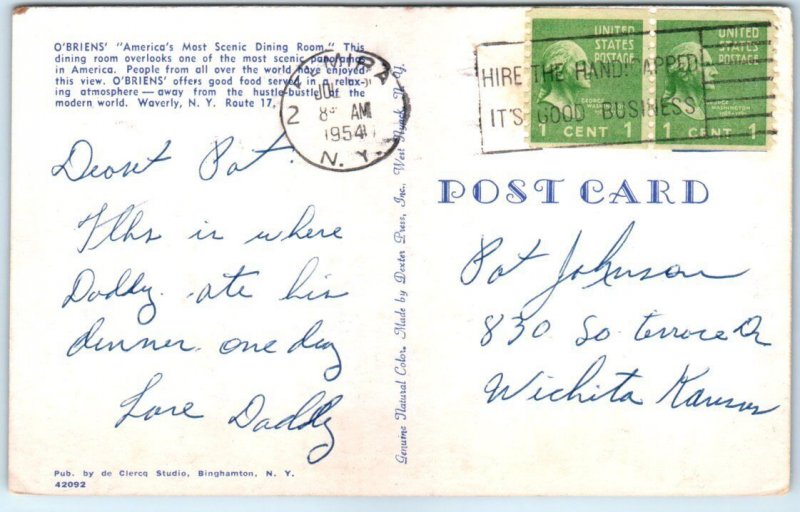 O'BRIENS' "America's Most Scenic Dining Room." This
dining room overlooks one of the most scenic panoramas
in America. People from all over the world have enjoyed
this view. O'BRIENS' offers good food served in a relax-
ing atmosphere — away from the hustle-bustle of the
modern world. Waverly, N. Y. Route 17.
Dearest Pat.
This is where
Daddy ate his
dinner one day
Love Daddy
Pub. by de Clercq Studio, Binghamton, N. Y.
42092
Genuine Natural Color. Made by Dexter Press, Inc., West Nyack, N. Y.
ELMIRA
2
8 AM
1954
N. Y.
HIRE THE HANDICAPPED
IT'S GOOD BUSINESS
UNITED
STATES
POSTAGE
GEORGE
WASHINGTON
1 CENT 1
UNITED
STATES
POSTAGE
GEORGE
WASHINGTON
1 CENT 1
POST CARD
Pat Johnson
830 So. Terrace Dr
Wichita Kansas